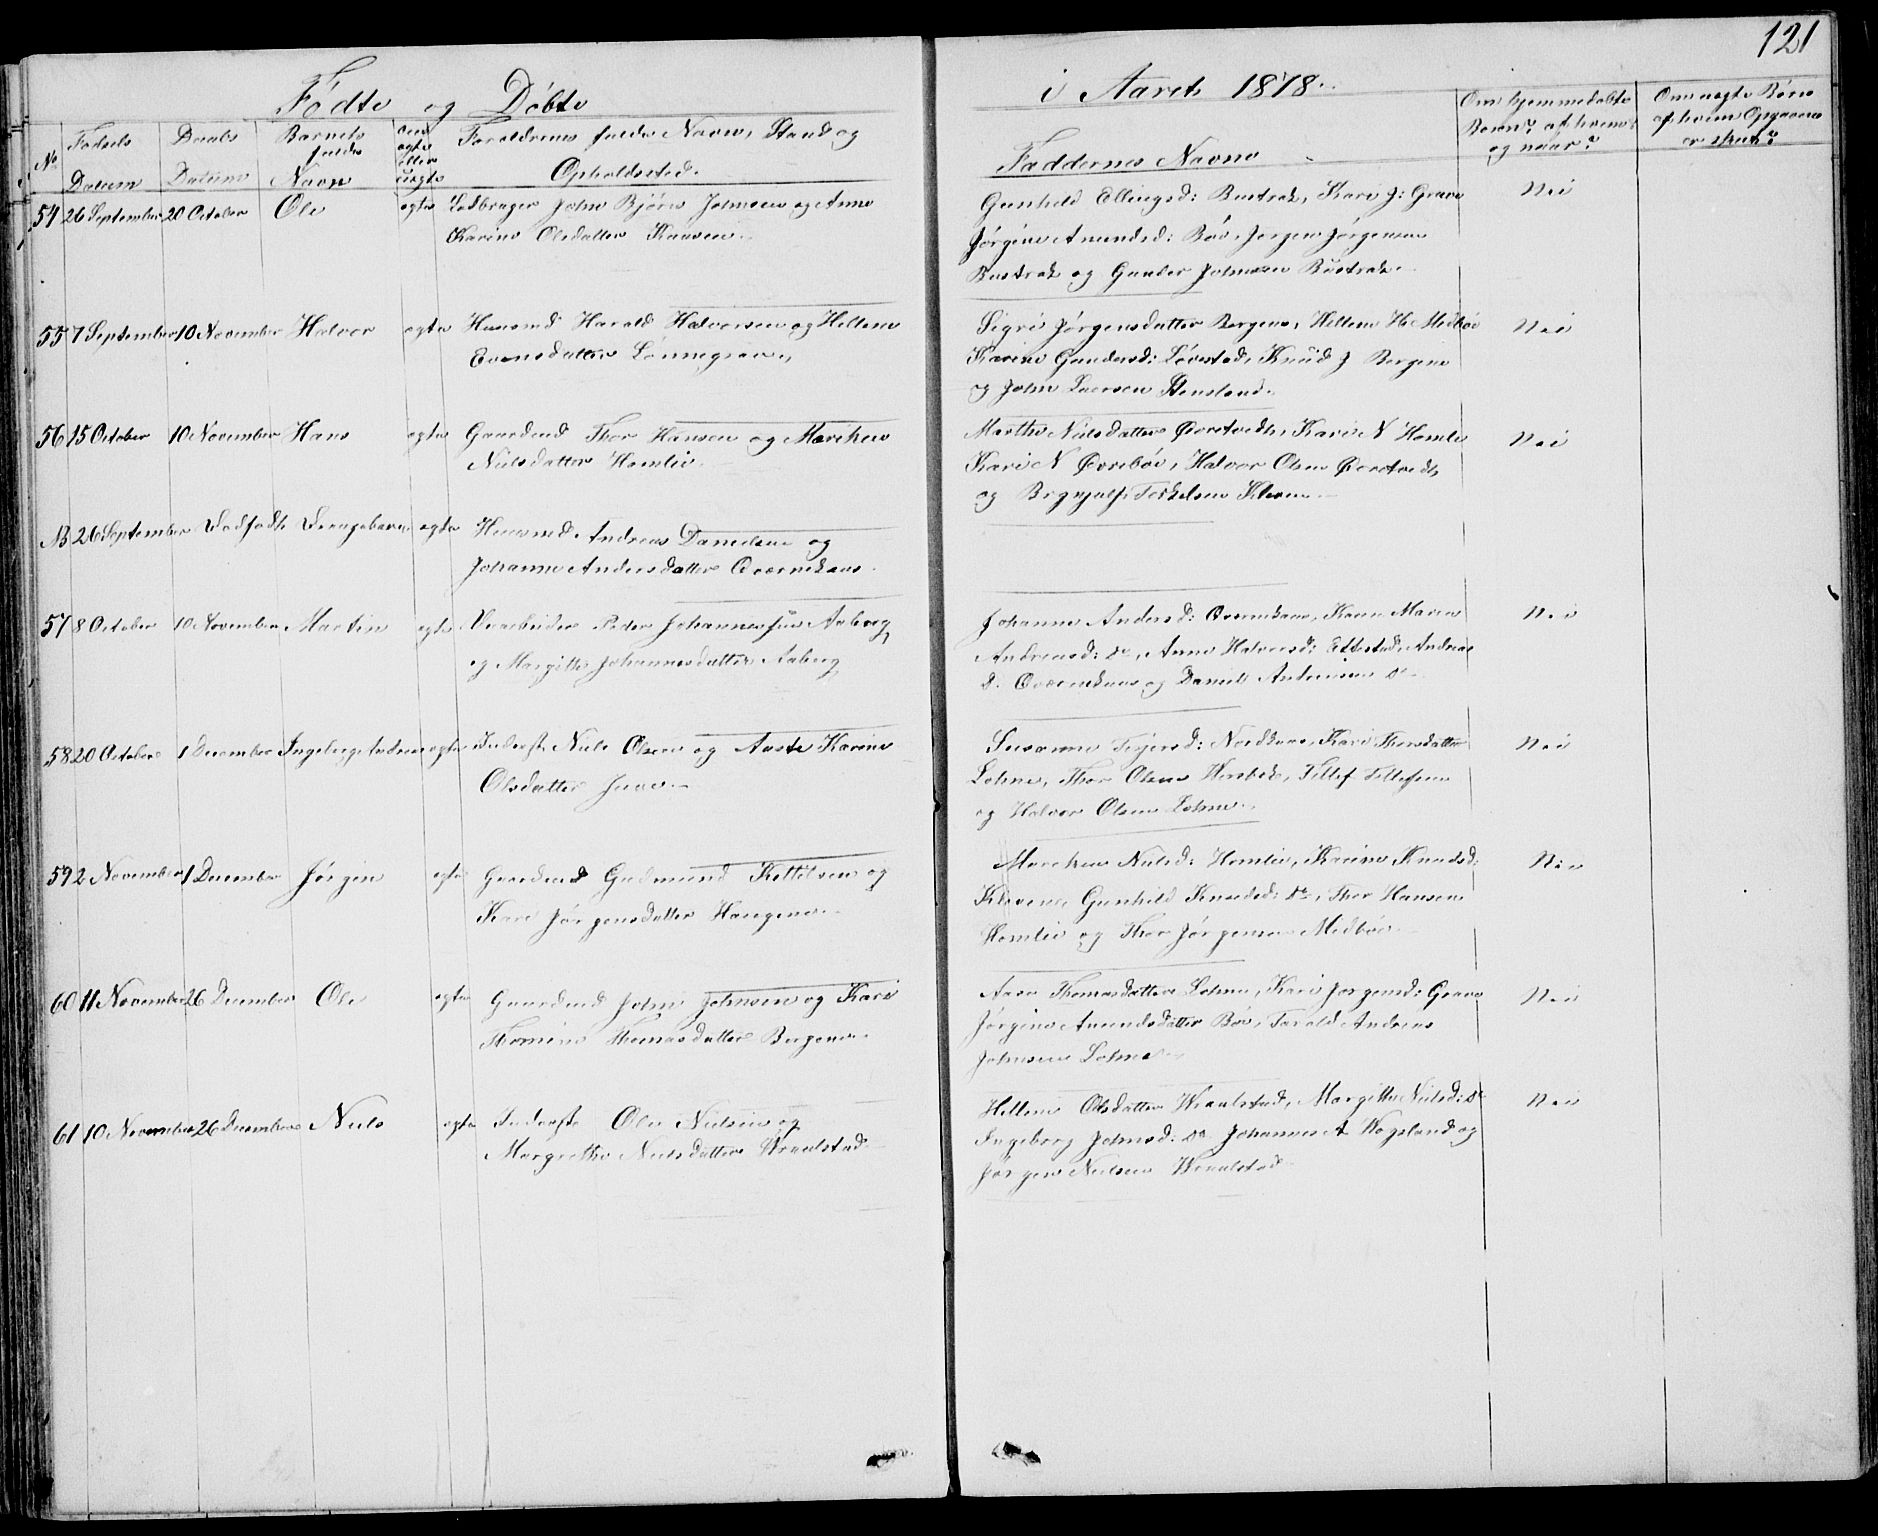 121
Födte og Döbte
i Aaret 1878.
No
Födsels Datum
Daabs Datum
Barnets fulde Navn
Om ægte eller uægte
Forældrenes fulde Navne, Stand og Opholdssted.
Faddernes Navne
Om hjemmedöbte Børn? af hvem? og naar?
Om uægte Børn af hvem Opgaven er skeet?
54 26 September 20 October Ole ægte Ladbruger John Bjørn Johnsen og Anne
Karine Olsdatter
Gunhild Ellingsd: Bustrak, Kari J: Grave
Jörgine Amundsd: Böe, Jörgen Jörgensen
Bustrak og Gunder Johnsen Bustrak.
Nei
55 7 September 10 November Halvor ægte Huusmd Harald Halvorsen og Hellene
Evensdatter Lönnegrav.
Sigri Jörgensdatter Bergene, Hellene H. Medböe
Karine Gundersd: Lövstad, Knud J Bergene
og John Larsen Stensland.
Nei
56 15 October 10 November Hans ægte Gaardmd Thor Hansen og Mariken
Nielsdatter Homlie.
Marthe Nielsdatter Övretvedt, Kari N Homlie
Kari N Övreböe, Halvor Olsen Övretvedt
og Brynjulf Terkelsen Kleven
Nei
NB 26 September Dødfødt Drengebarn ægte Huusmd. Andreas Danielsen og
Johanne Andersdatter Qværnekaas.
57 8 October 10 November Martin ægte Peder Johannessen Aaberg
og Margithe Johannesdatter Aaberg
Johanne Andersd: Qværnekaas, Karen Maren
Andreasd: do, Anne Halvorsd: Eftestad, Andreas
D. Qværnekaas og Daniel Andersen do
Nei
58 20 October 1 December Ingeborg Andrea ægte Inderst Niels Olsen og Aaste Karine
Olsdatter
Susanne Terjersd: Nordkaas, Kari Thorsdatter
Lohne, Thor Olsen Herebek, Tellef Tellefsen
og Halvor Olsen Lohne.
Nei
59 2 November 1 December Jörgin ægte Gaardmd Gudmund Kittilsen og
Kari Jörgensdatter Haugene.
Mariken Nielsd: Homlie, Karine Knudsd:
Klevene, Gunhild Knudsd: do, Thor Hansen
Homlie og Thor Jörgensen Medböe.
Nei
60 11 November 26 December Ole ægte Gaardmd John Johnsen og Kari
Thomine Thomasdatter Bergene.
Aase Thomasdatter Lohne, Kari Jörgensd: Grave
Jörgine Amundsdatter Böe, Tarald Andreas
Johnsen Lohne
Nei
61 10 November 26 December Niels ægte Inderste Ole Nielsen og
Margrethe Nielsdatter Wraalstad
Hellene Olsdatter Wraalstad, Margithe Nielsd: do
Ingeborg Johnsd: do Johannes A Wegsland og
Jörgen Nielsen Wraalstad
Nei